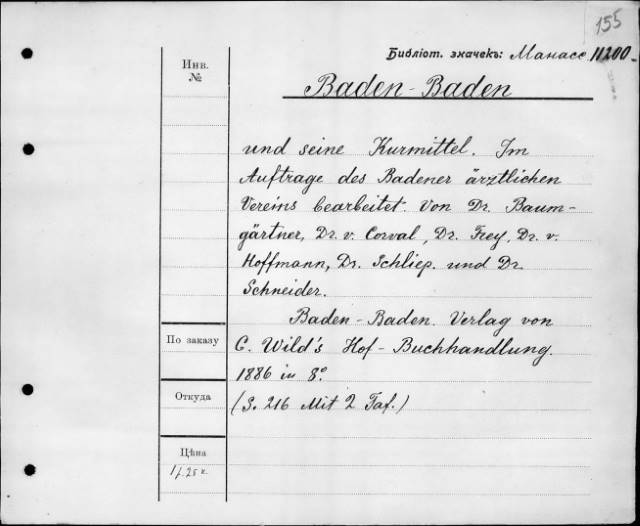 155
Библіот. значекъ: Манасс 11200.
Инв.
№
Baden-Baden
und seine Kurmittel. Im
Auftrage des Badener ärztlichen
Vereins bearbeitet von Dr. Baum-
gärtner, Dr. v. Corval, Dr. Frey, Dr. v.
Hoffmann, Dr. Schliep. und Dr.
Schneider.
Baden-Baden. Verlag von
По заказу
C. Wild's Hof-Buchhandlung.
1886 in 8°.
Откуда
(S. 216 Mit 2 Taf.)
Цѣна